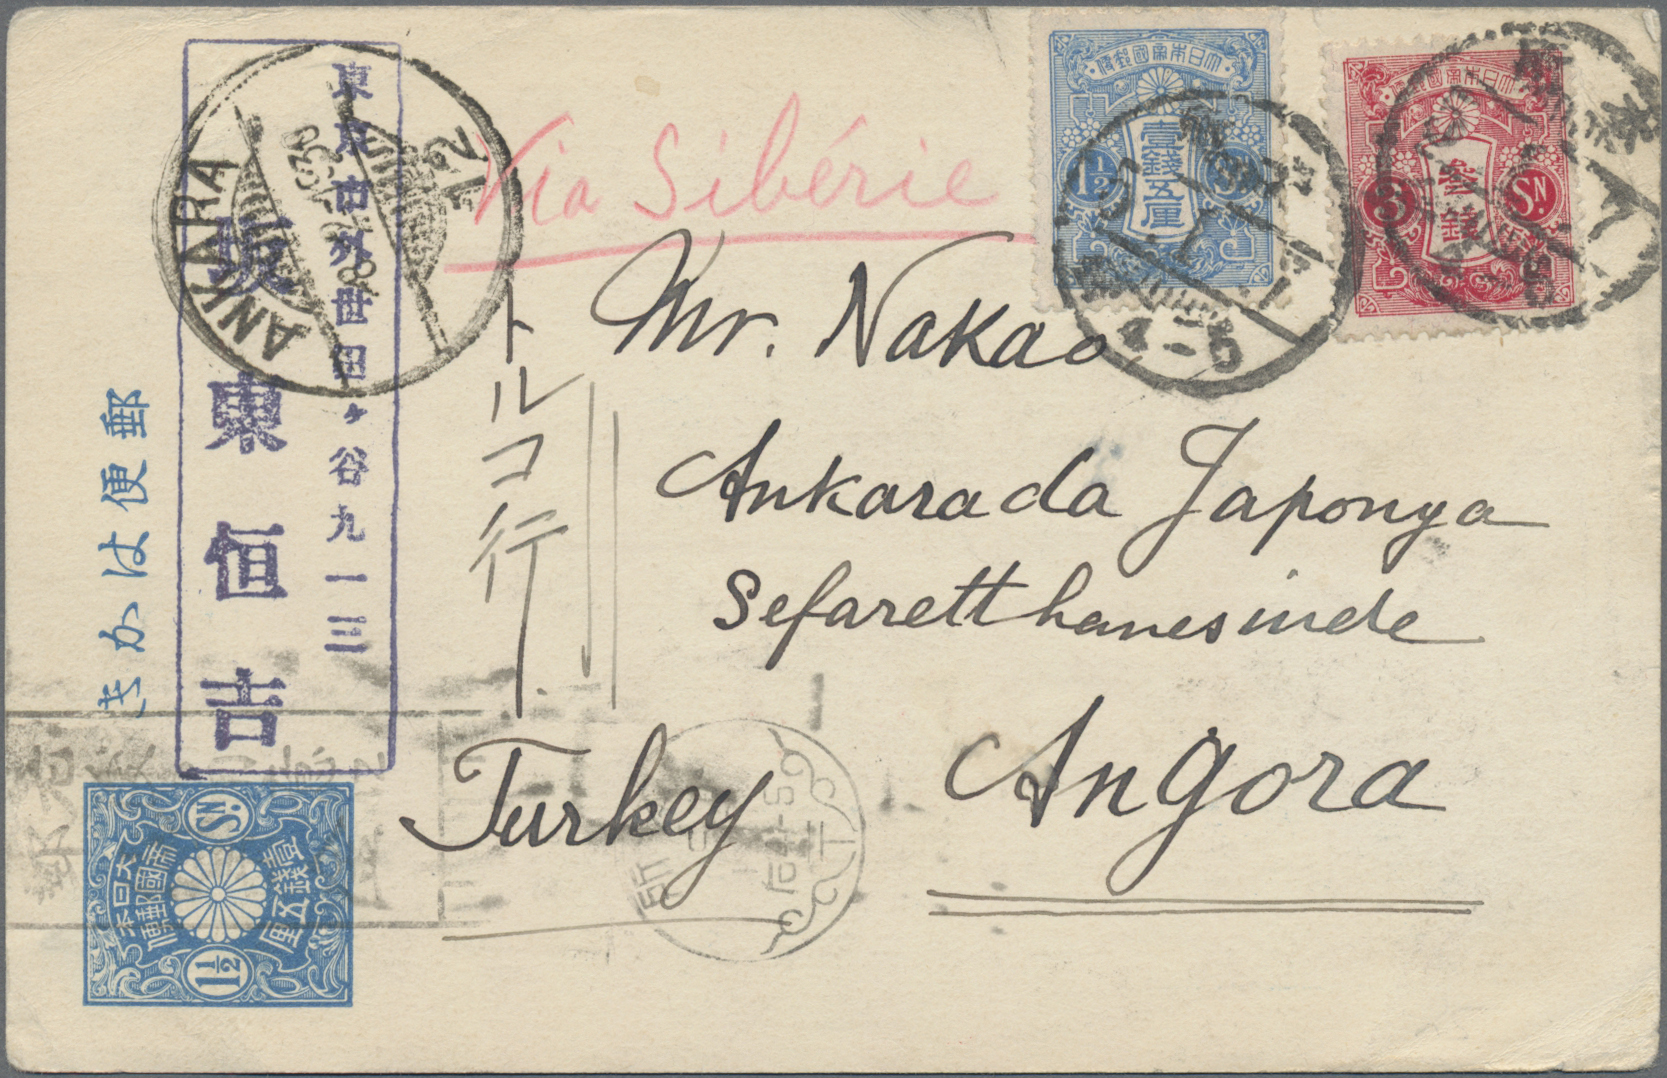 Via Sibérie
Mr. Nakao
Ankarada Japonya
Sefaretthanesinde
Angora
Turkey
トルコ行
東京市外世田ヶ谷九一三
坂東恒吉
郵便はかき
ANKARA
12
1930
大日本帝國郵便
壹錢五厘
1½
Sɴ.
大日本帝國郵便
叁錢
3
Sɴ.
大日本
帝國郵便
壹錢五厘
1½
Sɴ.
4-5